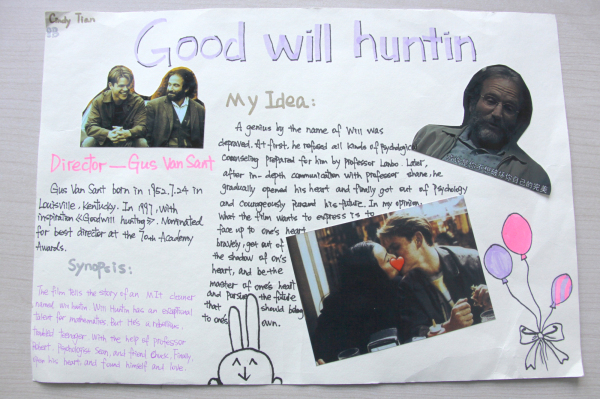 Cindy Tian
9B
Good will huntin
My Idea:
A genius by the name of Will was
depraved. At first, he refused all kinds of psychological
counseling prepared for him by professor Lanbo. Later,
after in-depth communication with professor shane, he
gradually opened his heart and finally got out of psychology
and courageously pursued his future. In my opinion,
what the film wants to express is to
face up to one's heart
bravely, get out of
the shadow of one's
heart, and be the
master of one's heart
and pursue the future
that should belong
to one's own.
Director — Gus Van Sant
Gus Van Sant born in 1952.7.24 in
Louisville, Kentucky. In 1997, with
inspiration 《Goodwill hunting》. Nominated
for best director at the 70th Academy
Awards.
Synopsis:
The film tells the story of an M.I.t cleaner
named will huntin. Will Huntin has an exceptional
talent for mathematics. But he's a rebellious,
troubled teenager. With the help of professor
Robert, Psychologist Sean, and friend Chuck, Finally,
open his heart and found himself and love.
你自己的完美